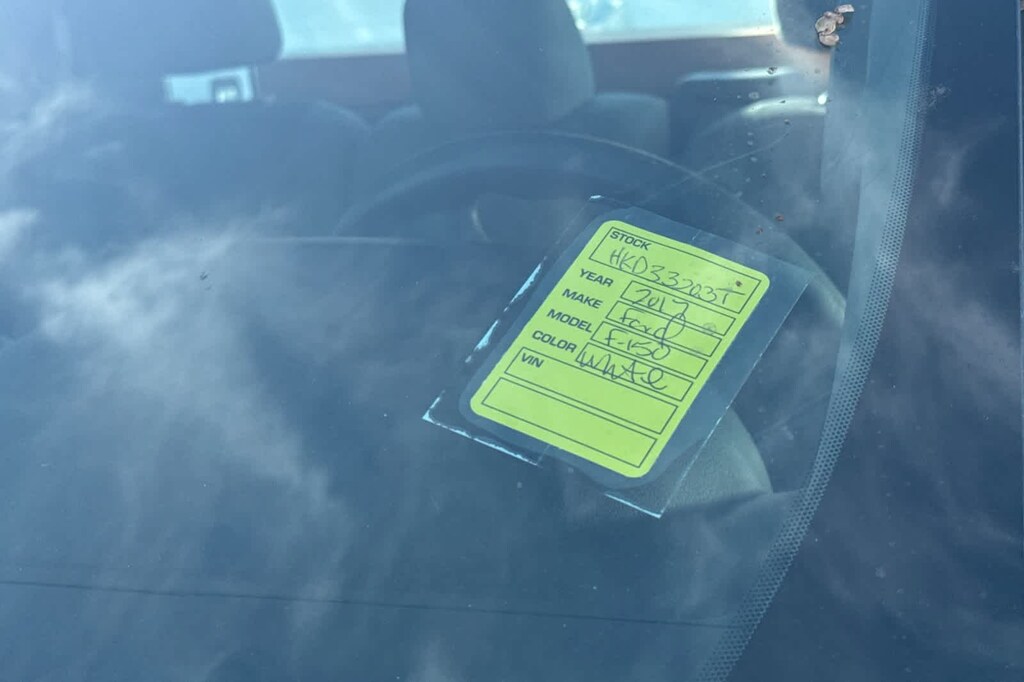 STOCK
HKD33203T
YEAR 2017
MAKE Ford
MODEL F-150
COLOR White
VIN